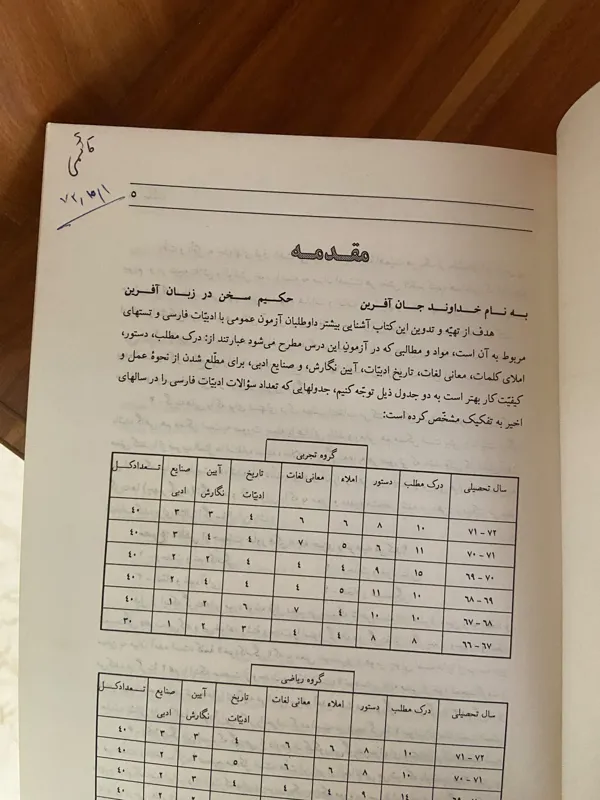 ۷۲٫۵٫۱
۵
مقدمه
به نام خداوند جان آفرین حکیم سخن در زبان آفرین
هدف از تهیّه و تدوین این کتاب آشنایی بیشتر داوطلبان آزمون عمومی با ادبیّات فارسی و تستهای
مربوط به آن است، مواد و مطالبی که در آزمونِ این درس مطرح می‌شود عبارتند از: درک مطلب، دستور،
املای کلمات، معانی لغات، تاریخ ادبیّات، آیین نگارش، و صنایع ادبی، برای مطّلع شدن از نحوهٔ عمل و
کیفیّت کار بهتر است به دو جدول ذیل توجّه کنیم، جدولهایی که تعداد سؤالات ادبیّات فارسی را در سالهای
اخیر به تفکیک مشخّص کرده است:
گروه تجربی
سال تحصیلی درک مطلب دستور املاء معانی لغات تاریخ ادبیّات آیین نگارش صنایع ادبی تعدادکل
۷۱-۷۲ ۱۰ ۸ ۶ ۶ ۴ ۳ ۳ ۴۰
۷۰-۷۱ ۱۱ ۶ ۵ ۷ ۴ ۴ ۳ ۴۰
۶۹-۷۰ ۱۵ ۹ ۴ ۴ ۴ ۲ ۲ ۴۰
۶۸-۶۹ ۱۰ ۱۱ ۵ ۴ ۴ ۴ ۲ ۴۰
۶۷-۶۸ ۱۰ ۱۰ ۴ ۷ ۶ ۲ ۱ ۴۰
۶۶-۶۷ ۸ ۸ ۴ ۴ ۳ ۲ ۱ ۳۰
گروه ریاضی
سال تحصیلی درک مطلب دستور املاء معانی لغات تاریخ ادبیّات آیین نگارش صنایع ادبی تعدادکل
۷۱-۷۲ ۱۰ ۸ ۶ ۶ ۴ ۳ ۳ ۴۰
۷۰-۷۱ ۱۰ ۸ ۶ ۶ ۵ ۳ ۲ ۴۰
۱۴ ۹ ۴۰